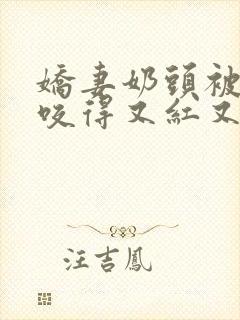 嬌妻奶頭被
咬得又紅又
汪吉鳳